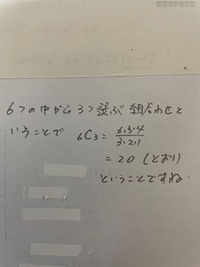 6つの中から3つ選ぶ 組合わせと
いうことで ₆C₃ = 6.5.4/3.2.1
= 20 (とおり)
ということですね.